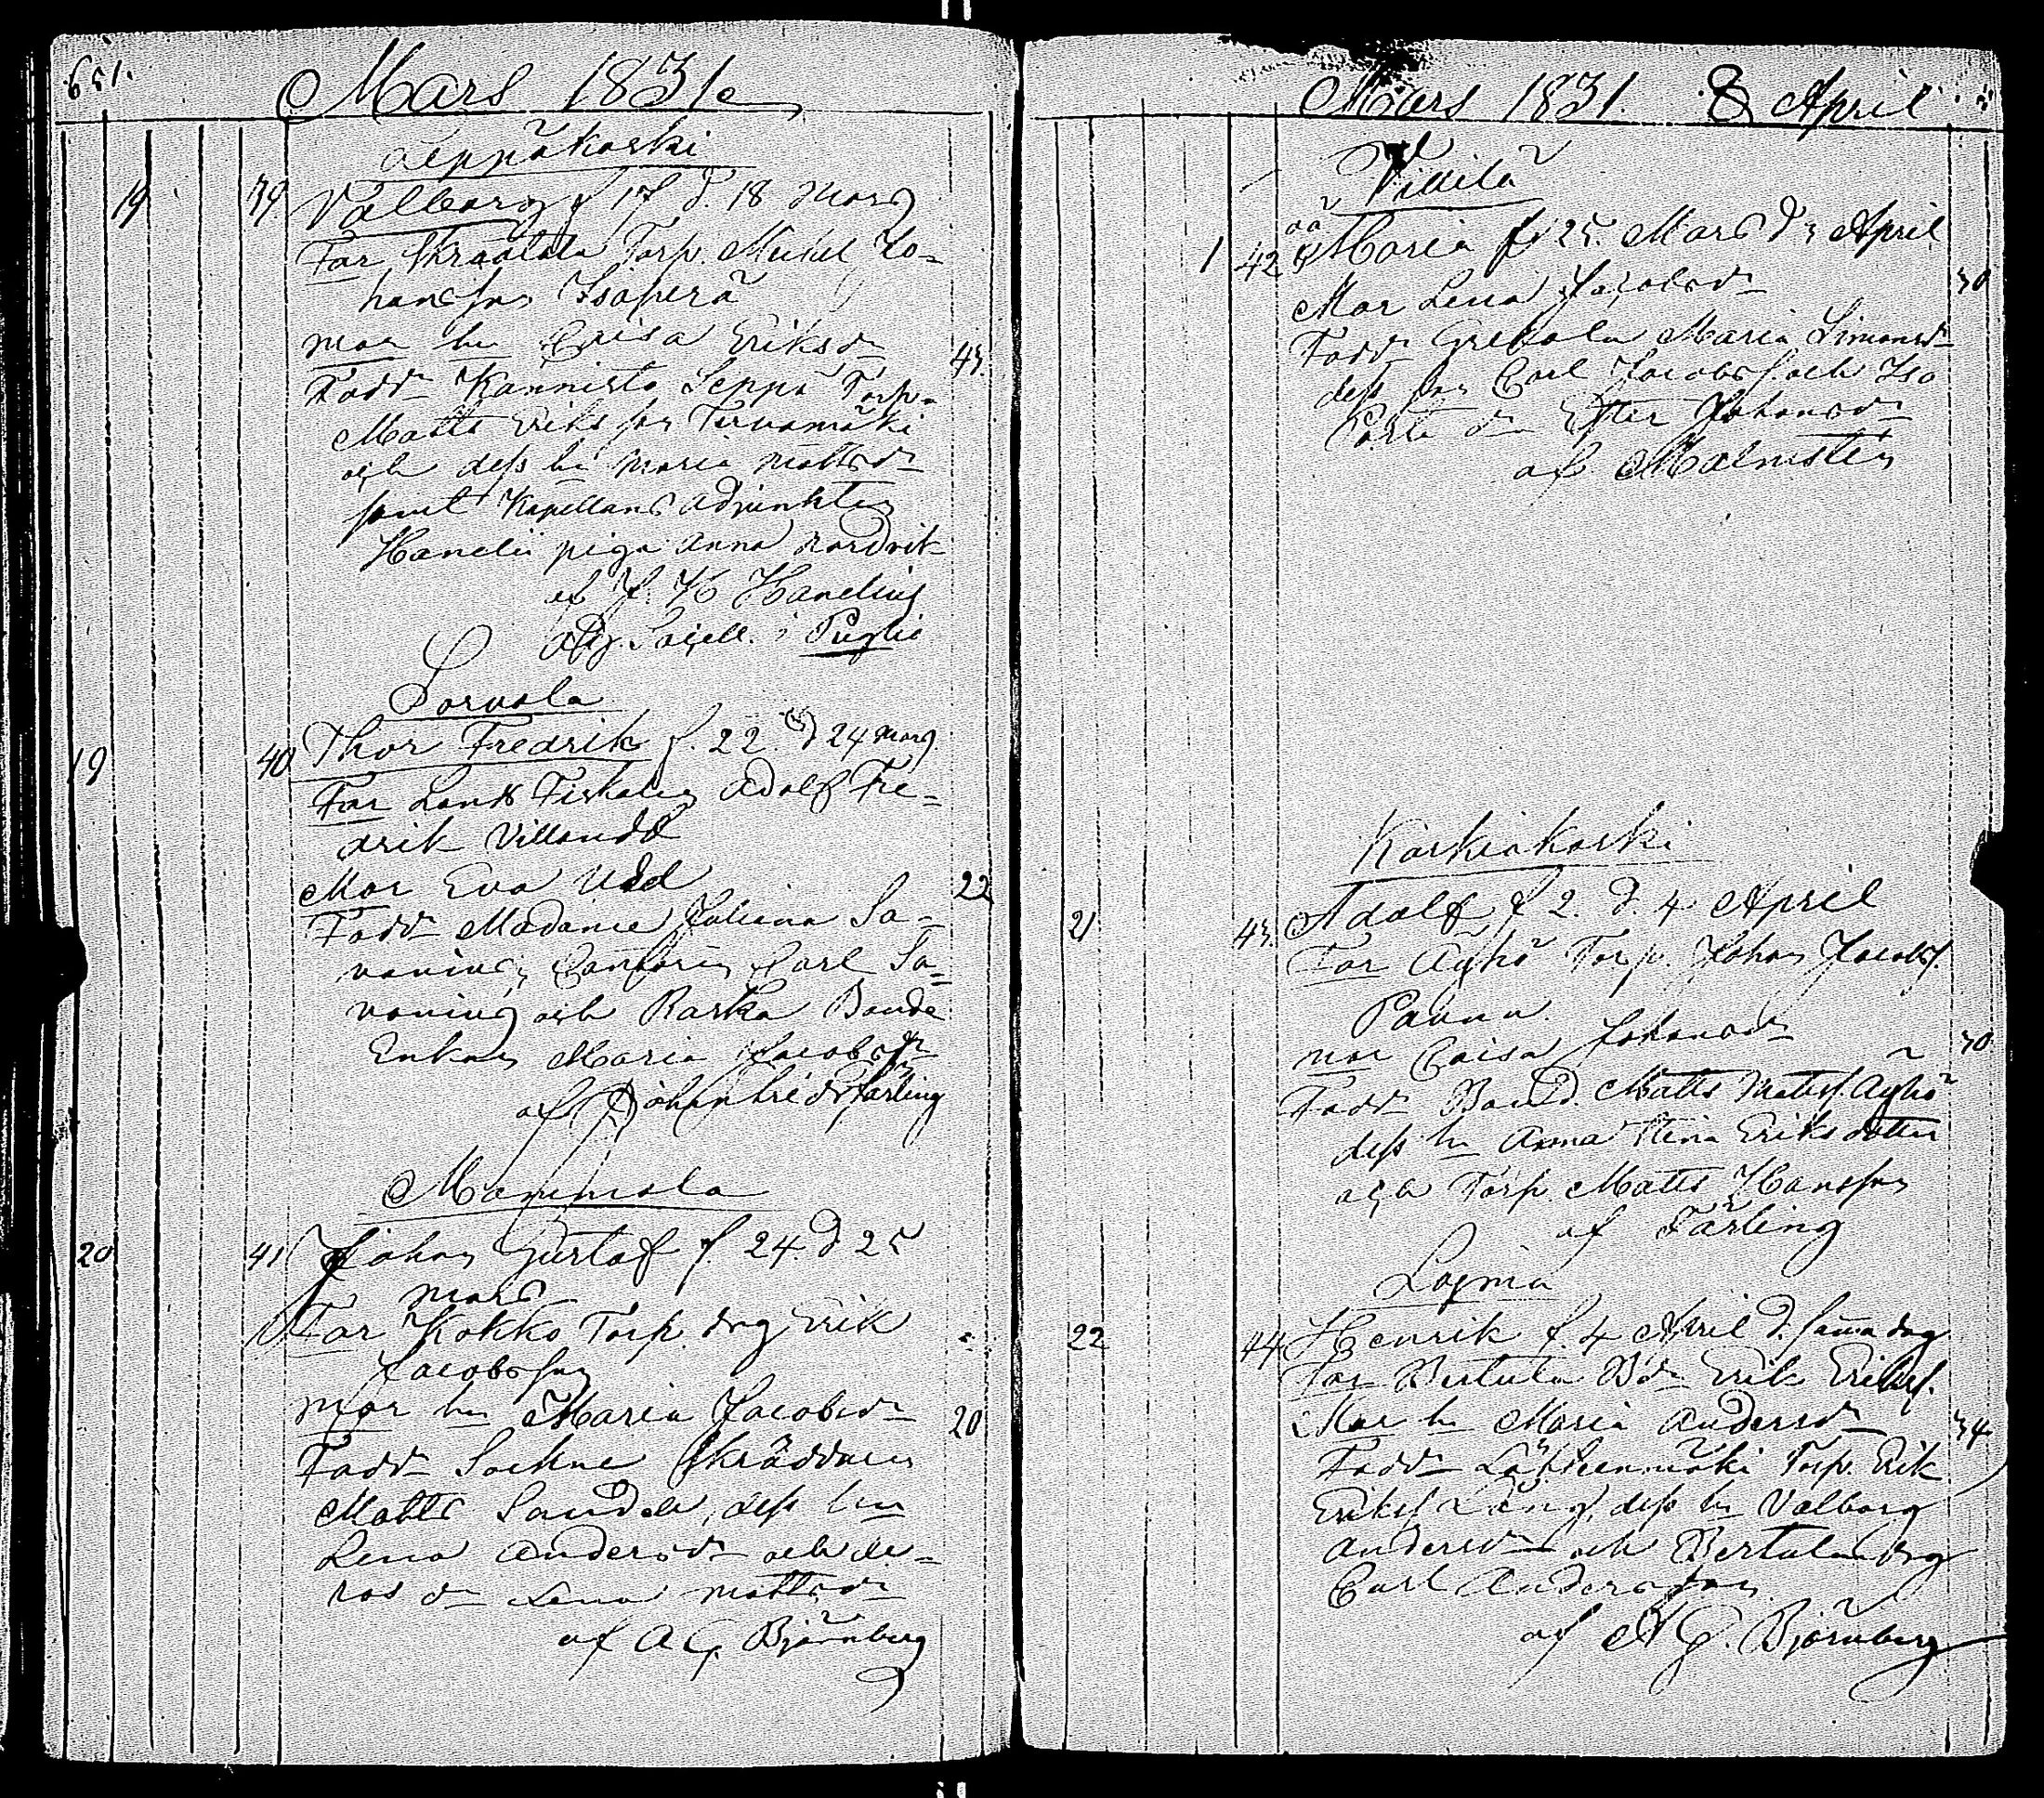 651.
Mars 1831
Leppäkoski
19 39 Valborg f 17 d. 18 Mars
Far Skraatala Torp. Mickel Jo=
hansson Isoperä
mor hu Caisa Eriksdr 43
Fadd Kannisto Seppä Torp.
Matts Eriksson Tervamäki
och dess hu Maria Mattsdr
samt Kapellans adjunkten
Hanelii piga Anna Nordvik
af J. K Hanelius
Adj. Sacell. i Pyhtiö
Sorvola
19 40 Thor Fredrik f. 22. d 24 Mars
Far Lands Fiskalen Adolf Fre=
drik Villandt
Mor Eva Udd 22
Fadd Madame Juliana Sa=
vonius, Cantorn Carl Sa=
vonius och Raska Bonde
Enkan Maria Jacobsdr
af Johan Fredr Färling
Mammala
20 41 Johan Gustaf f. 24. d 25
mars
Far Kokko Torp. drg Erik
Jacobsson
mor hu Maria Jacobsdr 20
Fadd Skräddaren
Matts Sandell, dess hu
Lena Andersdr och de=
ras dr Lena Mattsdr
af A G. Björnberg
Mars 1831. & April
oä
1 42 Maria f 25. Mars d 3 April
Mor Lena Jacobsdr 30
Fadd Grekola Maria Simonsdr
dess son Carl Jacobs. och Iso
dr Ester Johansdr
af Malmsten
Karkiakoski
21 43. Adolf f 2. d. 4 April
Far Äyhö Torp. Johan Jacobs.
Pavun
mor Caisa Johansdr 30
Fadd Bond. Matts Matts. Äyhö
dess hu Anna Stina Eriksdotter
och Torp. Matts Hansson
af Färling
Loima
22 44 Henrik f. 4 April d. samma dag
Far Bertula Bd Erik Eriks.
Mor hu Maria Andersdr 34
Fadd Lähteenmäki Torp. Erik
Eriks. Läng, dess hu Valborg
Andersdr och Bertula drg
Carl Andersson
af A G. Björnberg